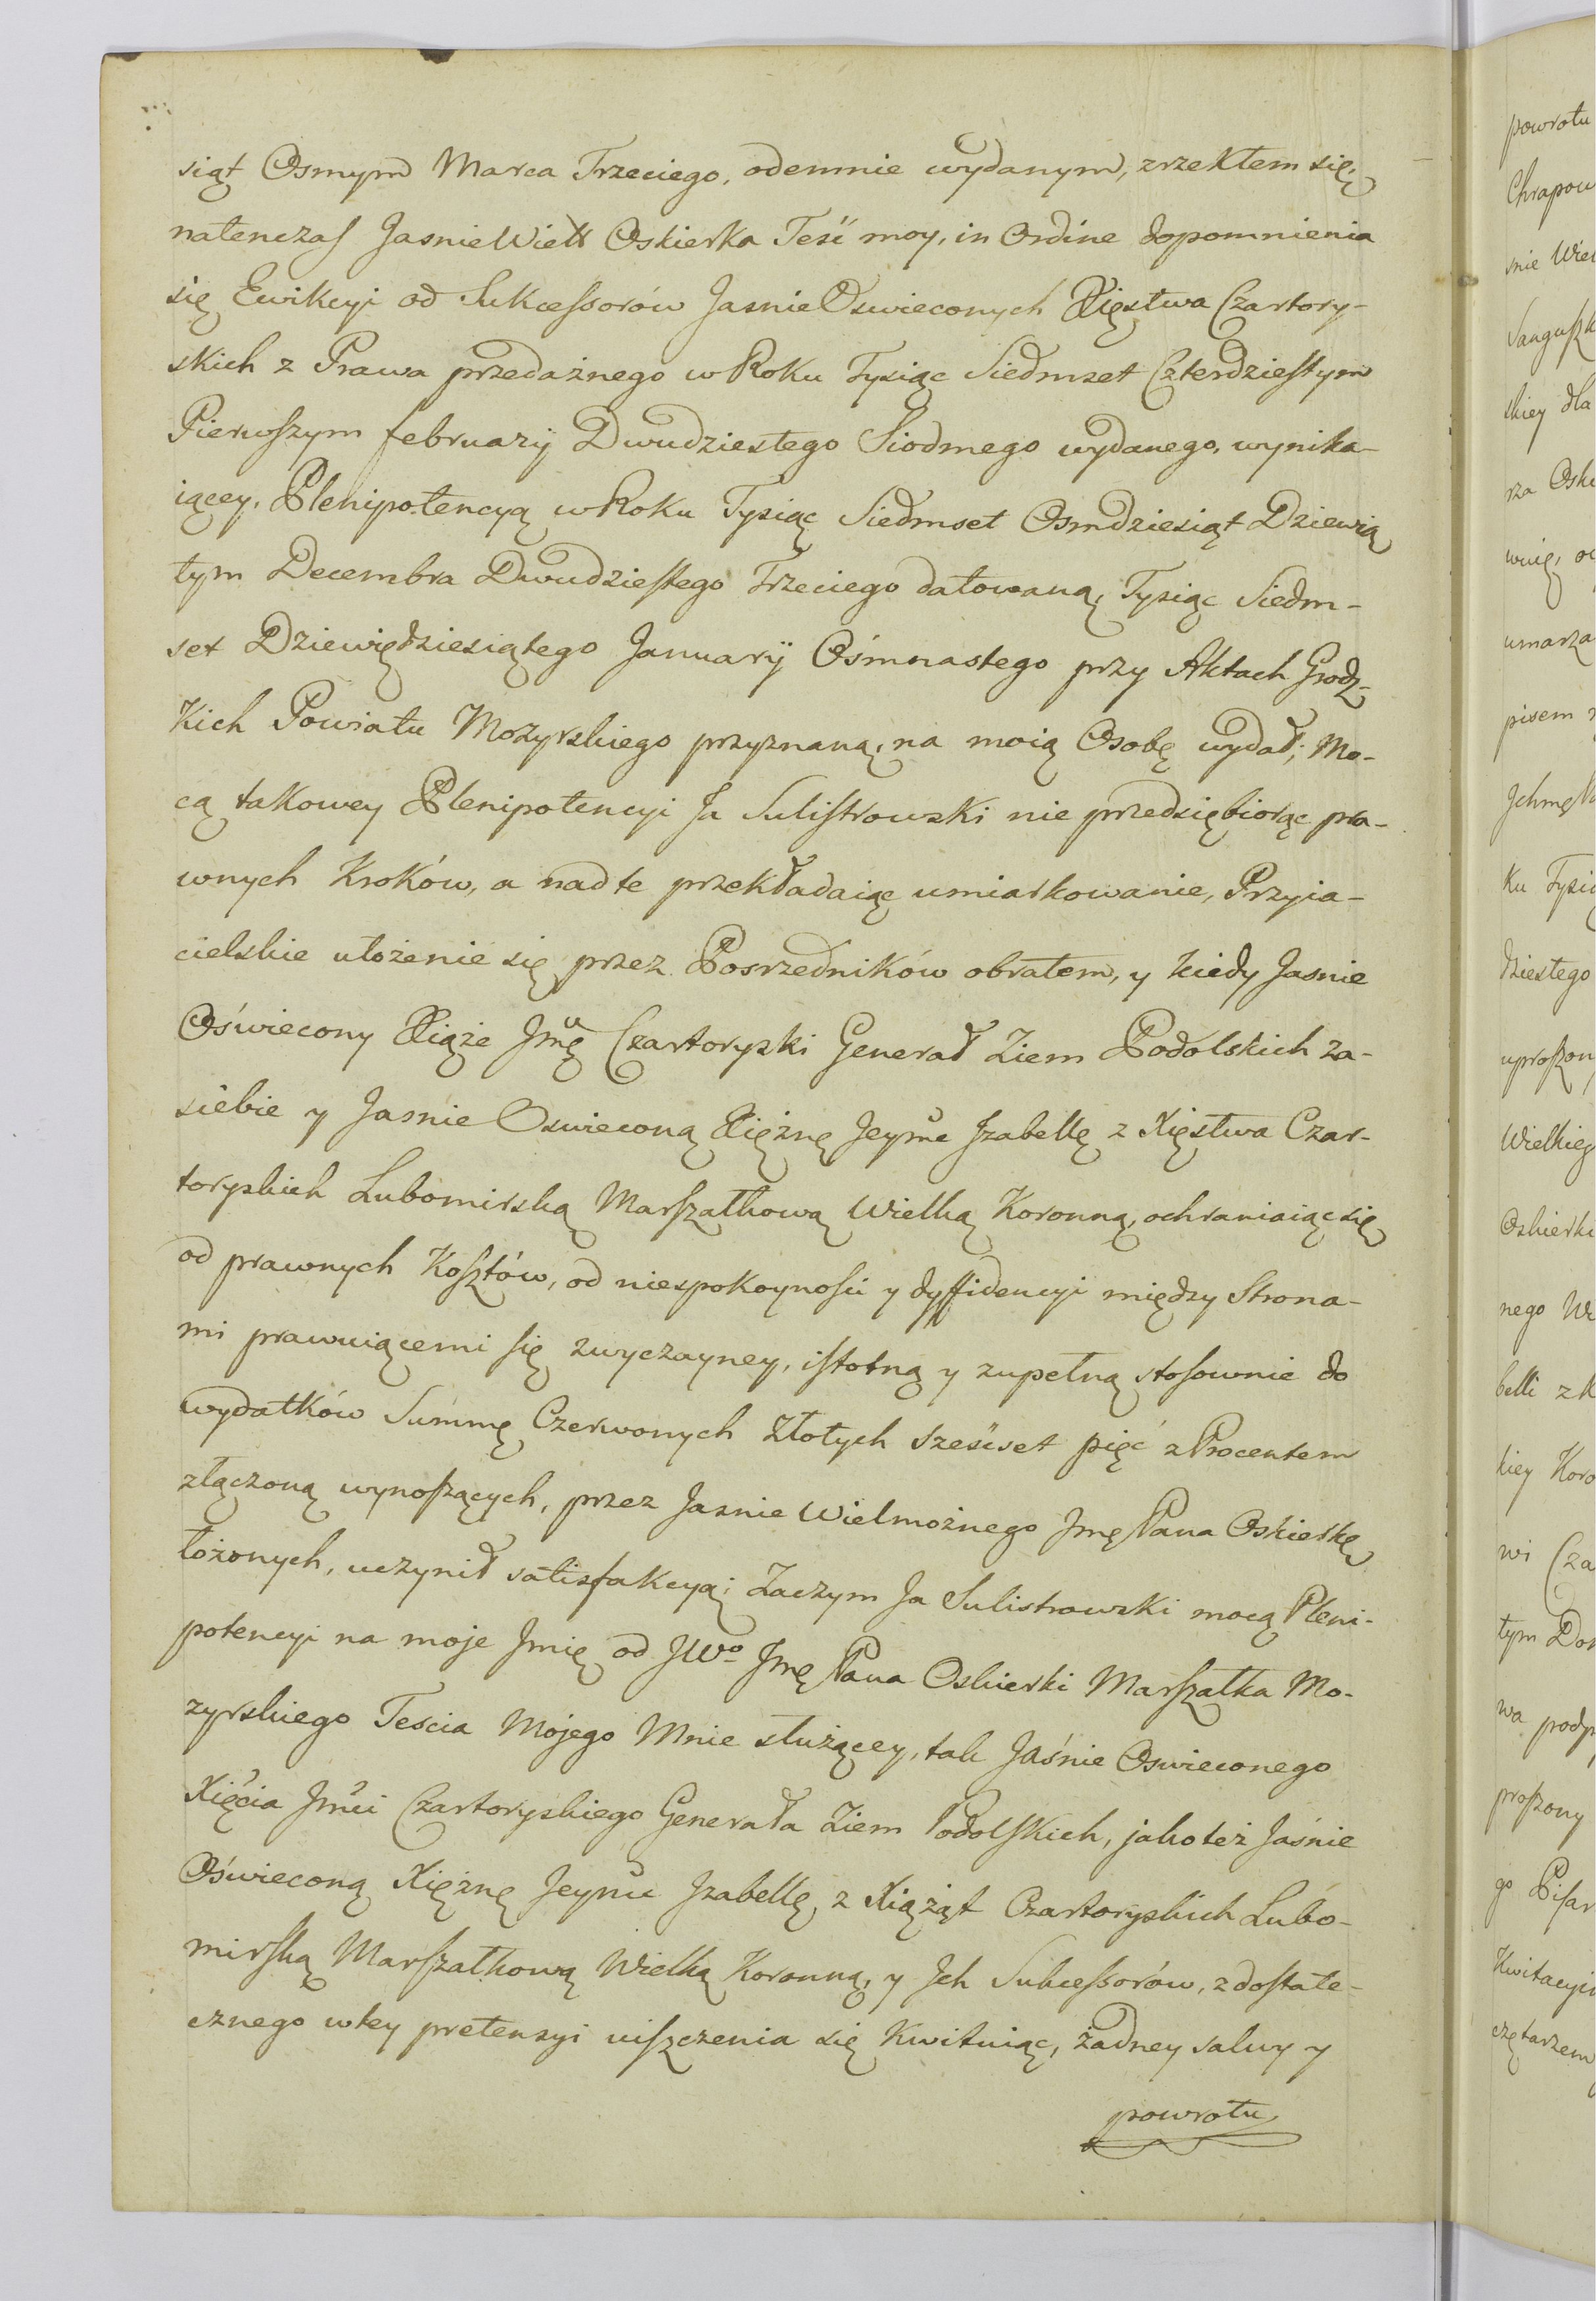 siąt Osmym Marca Trzeciego, odemnie wydanym, zrzekłem się,
natenczas JasnieWiell Oskierka Teść moy, in Ordine dopomnienia
się Ewikcyi od Sukcessorów JasnieOswieconych Xięstwa Czartory-
skich z Prawa przedażnego w Roku Tysiąc Siedmset Czterdziestym
Pierwszym february Dwudziestego Siodmego wydanego, wynika-
iącey, Plenipotencyą w Roku Tysiąc Siedmset Osmdziesiąt Dziewią
tym Decembra Dwudziestego Trzeciego datowaną, Tysiąc Siedm-
set Dziewiędziesiątego January Ośmnastego przy Aktach Grodz-
kich Powiatu Mozyrskiego przyznaną, na moią Osobę wydał; Mo-
cą takowey Plenipotencyi Ja Sulistrowski nie przedsiębiorąc pra-
wnych Kroków, a nad te przekładaiąc umiarkowanie, Przyia-
cielskie ułożenie się przez Posrzedników obrałem, y kiedy Jasnie
Oświecony Xiąże Jmę Czartoryski Generał Ziem Podolskich za-
siebie y Jasnie Oswieconą Xiężnę Jeymę Izabellę z Xięstwa Czar-
toryskich Lubomirską Marszałkową Wielką Koronną, ochraniaiąc się
od prawnych Kosztów, od niespokoyności y dyffidencyi między Strona-
mi prawuiącemi się zwyczayney, istotną y zupełną stosownie do
wydatków Summę Czerwonych Złotych sześćset pięć z Procentem
złączoną wynoszących, przez Jasnie Wielmożnego Jmę Pana Oskierkę
łożonych, uczynił satisfakcyą; Zaczym Ja Sulistrowski mocą Pleni-
potencyi na moje Jmię od JWo Jmę Pana Oskierki Marszałka Mo-
zyrskiego Teścia Mojego Mnie służącey, tak Jaśnie Oswieconego
Xięcia Jmći Czartoryskiego Generała Ziem Podolskich, jakoteż Jaśnie
Oświeconą Xiężnę Jeymć Izabellę z Xiążąt Czartoryskich Lubo-
mirską Marszałkową Wielką Koronną, y Jch Sukcessorów, z dostate-
cznego wtey pretensyi uiszczenia się Kwituiąc, żadney salwy y
powrotu
powrotu
Chrapow
snie Wiel
Sanguszk
skiey dla
rza Oski
wnię, o
umarza
pisem
Jchmę
Ku Tysią
dziestego
uproszon
Wielkieg
Oskierki
nego W
belli z K
kiey Koro
wi Cza
tym Do
wa podp
proszony
go Pisar
Kwitacyi
czętarzem